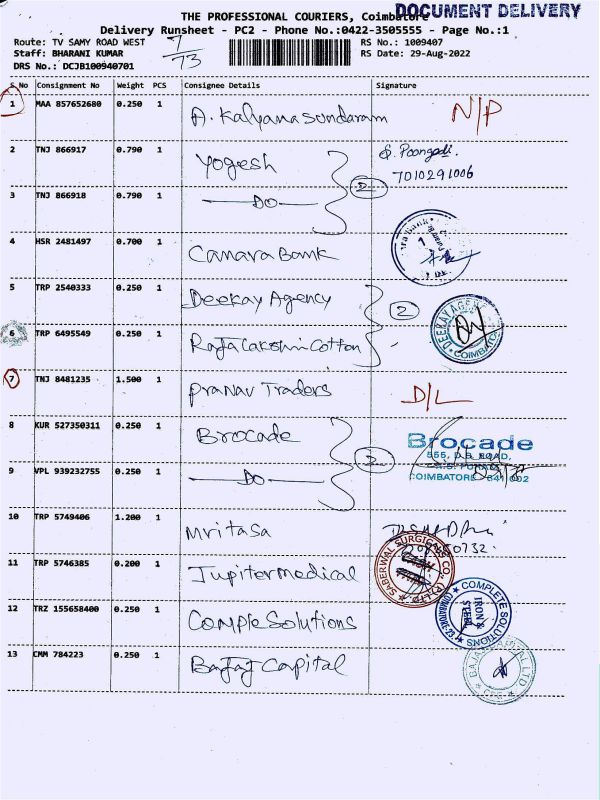 DOCUMENT DELIVERY
THE PROFESSIONAL COURIERS, Coimbatore
Delivery Runsheet - PC2 - Phone No.:0422-3505555 - Page No.:1
Route: TV SAMY ROAD WEST
7/73
RS No.: 1009407
Staff: BHARANI KUMAR
RS Date: 29-Aug-2022
DRS No.: DCJB100940701
S No Consignment No Weight PCS Consignee Details Signature
1 MAA 857652680 0.250 1 A. Kalyanasundaram N/P
2 TNJ 866917 0.790 1 Yogesh S. Poongodi.
7010291006
3 TNJ 866918 0.790 1 DO 2
4 HSR 2481497 0.700 1 Canara Bank
5 TRP 2540333 0.250 1 Deekay Agency 2
DEEKAY AGENC
COIMBATO
6 TRP 6495549 0.250 1 RajaLakshmi Cotton
7 TNJ 8481235 1.500 1 Pranav Traders D/L
8 KUR 527350311 0.250 1 Brocade
Brocade
555, D.B. ROAD,
R.S. PURAM,
COIMBATORE - 641 002
9 VPL 939232755 0.250 1 DO
10 TRP 5749406 1.200 1 Mritasa
11 TRP 5746385 0.200 1 Jupiter medical
SABERWAL SURGICAL CO. (P) LTD
12 TRZ 155658400 0.250 1 Comple Solutions
COMPLETE SOLUTIONS
IRON & STEEL
13 CMM 784223 0.250 1 Bajaj Capital
BAJAJ CAPITAL LTD
CBE